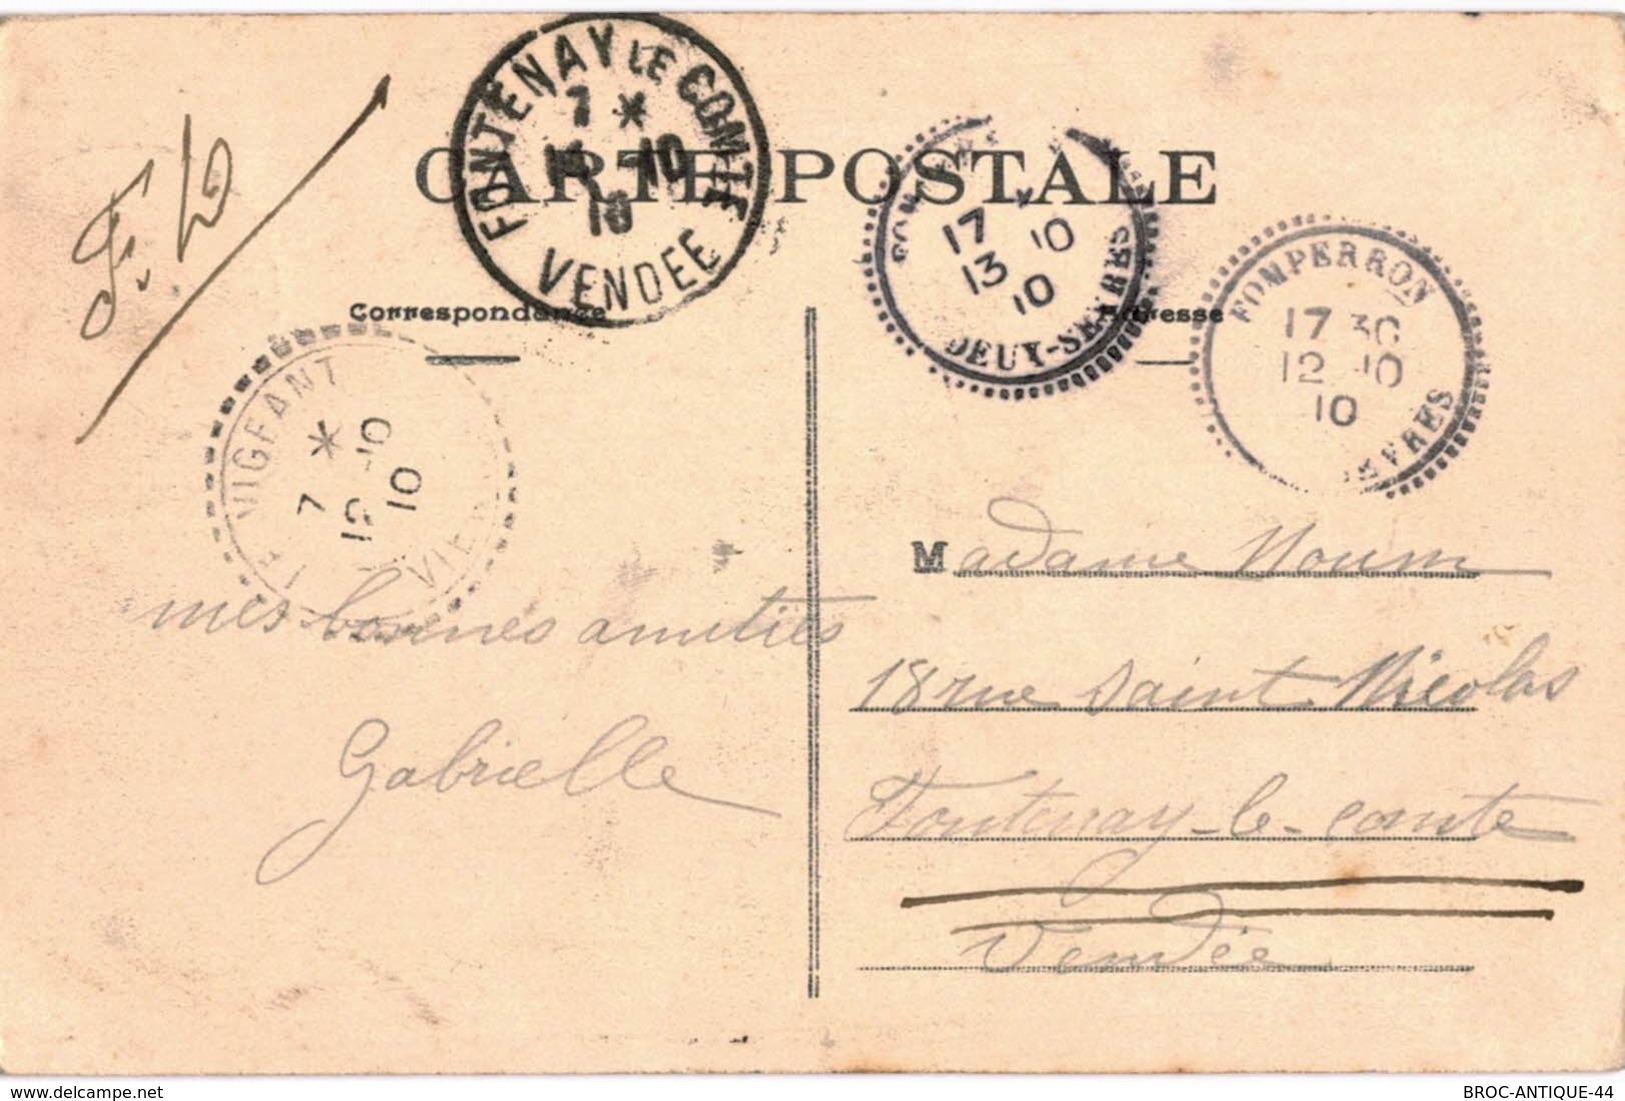 F. D
FONTENAY LE COMTE
7 *
10
VENDEE
CARTE POSTALE
17 *
13 10
10
DEUX-SEVRES
FOMPERRON
17 30
12 10
10
SEVRES
Correspondance
Adresse
LE VIGEANT
7 *
10 10
10
VIENNE
mes bonnes amitiés
Gabrielle
Madame
18 rue Saint Nicolas
Fontenay-le-comte
Vendée
BROC-ANTIQUE-44